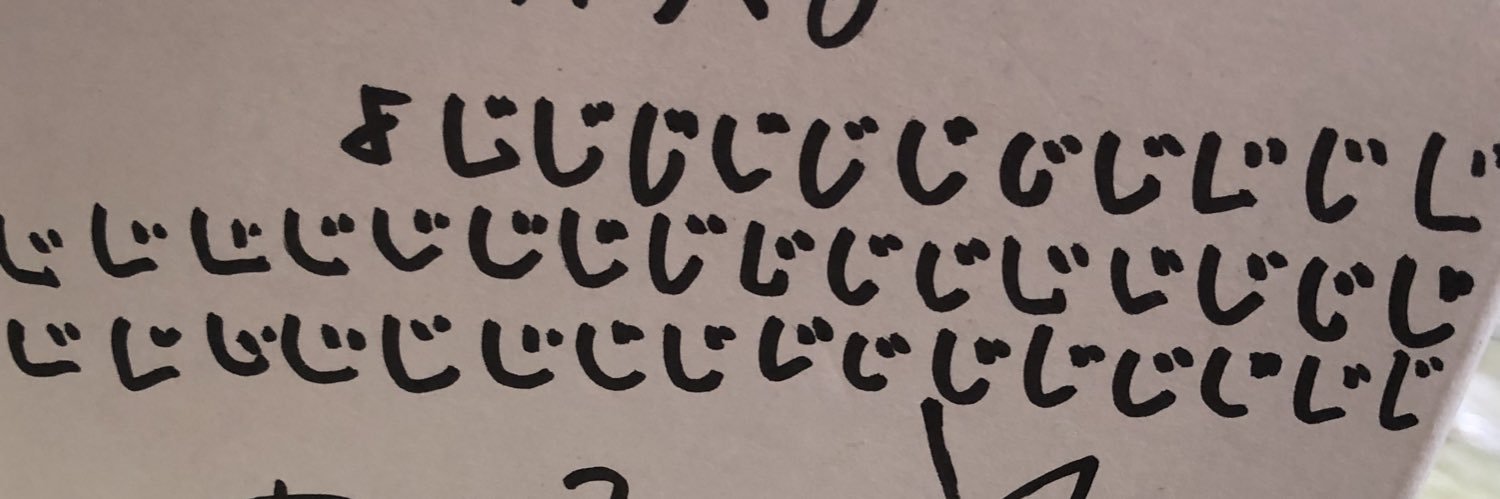 よじじじじじじじじじじじ
じじじじじじじじじじじじじじじじ
じじじじじじじじじじじじじじじじ